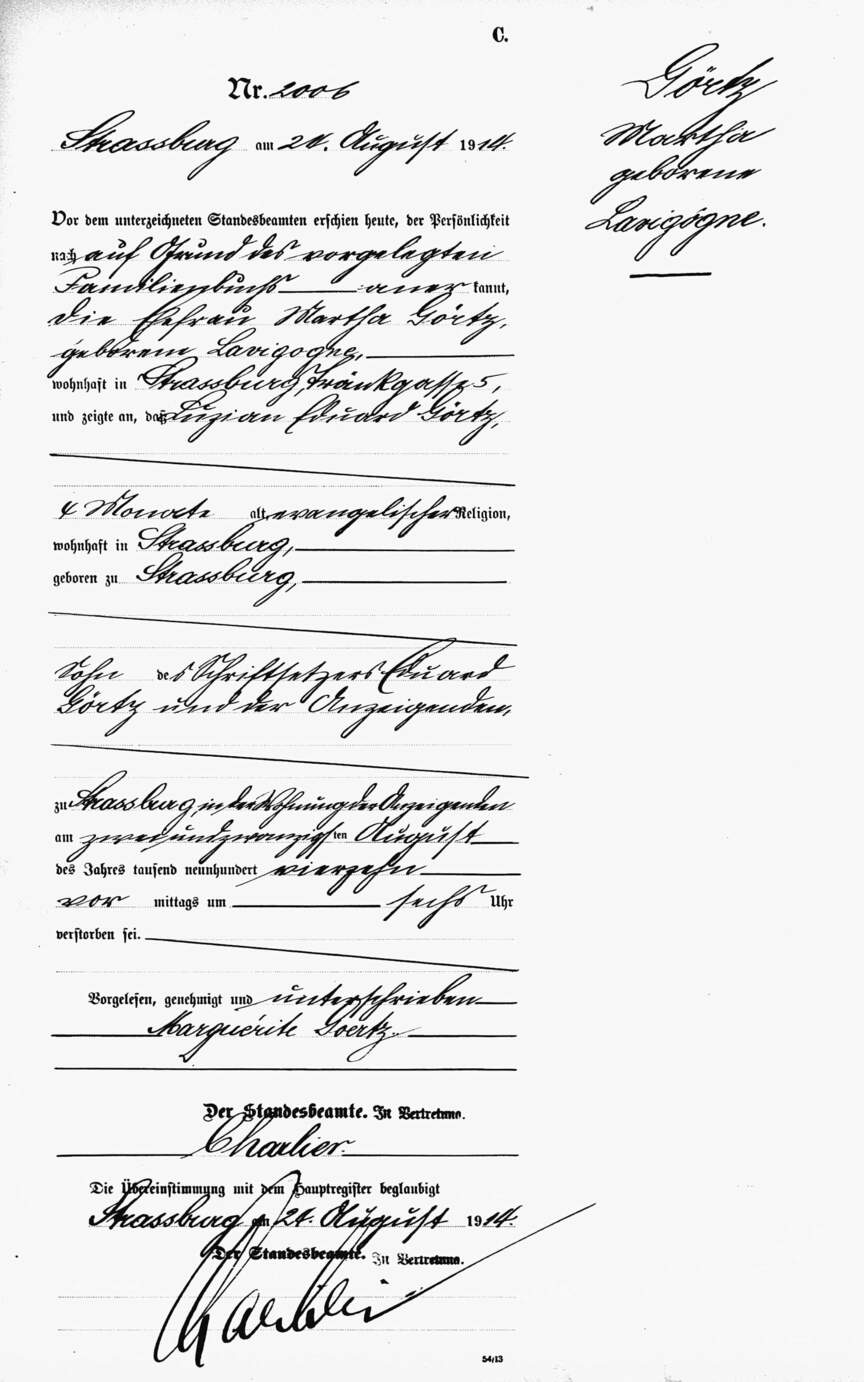 C.
Nr. 2006
Strassburg am 24. August 1914.
Görtz
Martha
geborene
Lavigogne.
Vor dem unterzeichneten Standesbeamten erschien heute, der Persönlichkeit
nach auf Grund des vorgelegten
Familienbuchs aner kannt,
die Ehefrau Martha Görtz,
geborene Lavigogne,
wohnhaft in Strassburg, Tränkgasse 5,
und zeigte an, daß Luzian Eduard Görtz,
4 Monate alt, evangelischer Religion,
wohnhaft in Strassburg,
geboren zu Strassburg,
Sohn des Schriftsetzers Eduard
Görtz und der Anzeigenden,
zu Strassburg, in der Wohnung der Anzeigenden
am zweiundzwanzigsten August
des Jahres tausend neunhundert vierzehn
vor mittags um sechs Uhr
verstorben sei.
Vorgelesen, genehmigt und unterschrieben
Marguérite Goertz.
Der Standesbeamte. In Vertretung.
Charlier.
Die Übereinstimmung mit dem Hauptregister beglaubigt
Strassburg am 24. August 1914.
Der Standesbeamte. In Vertretung.
Charlier
54/13